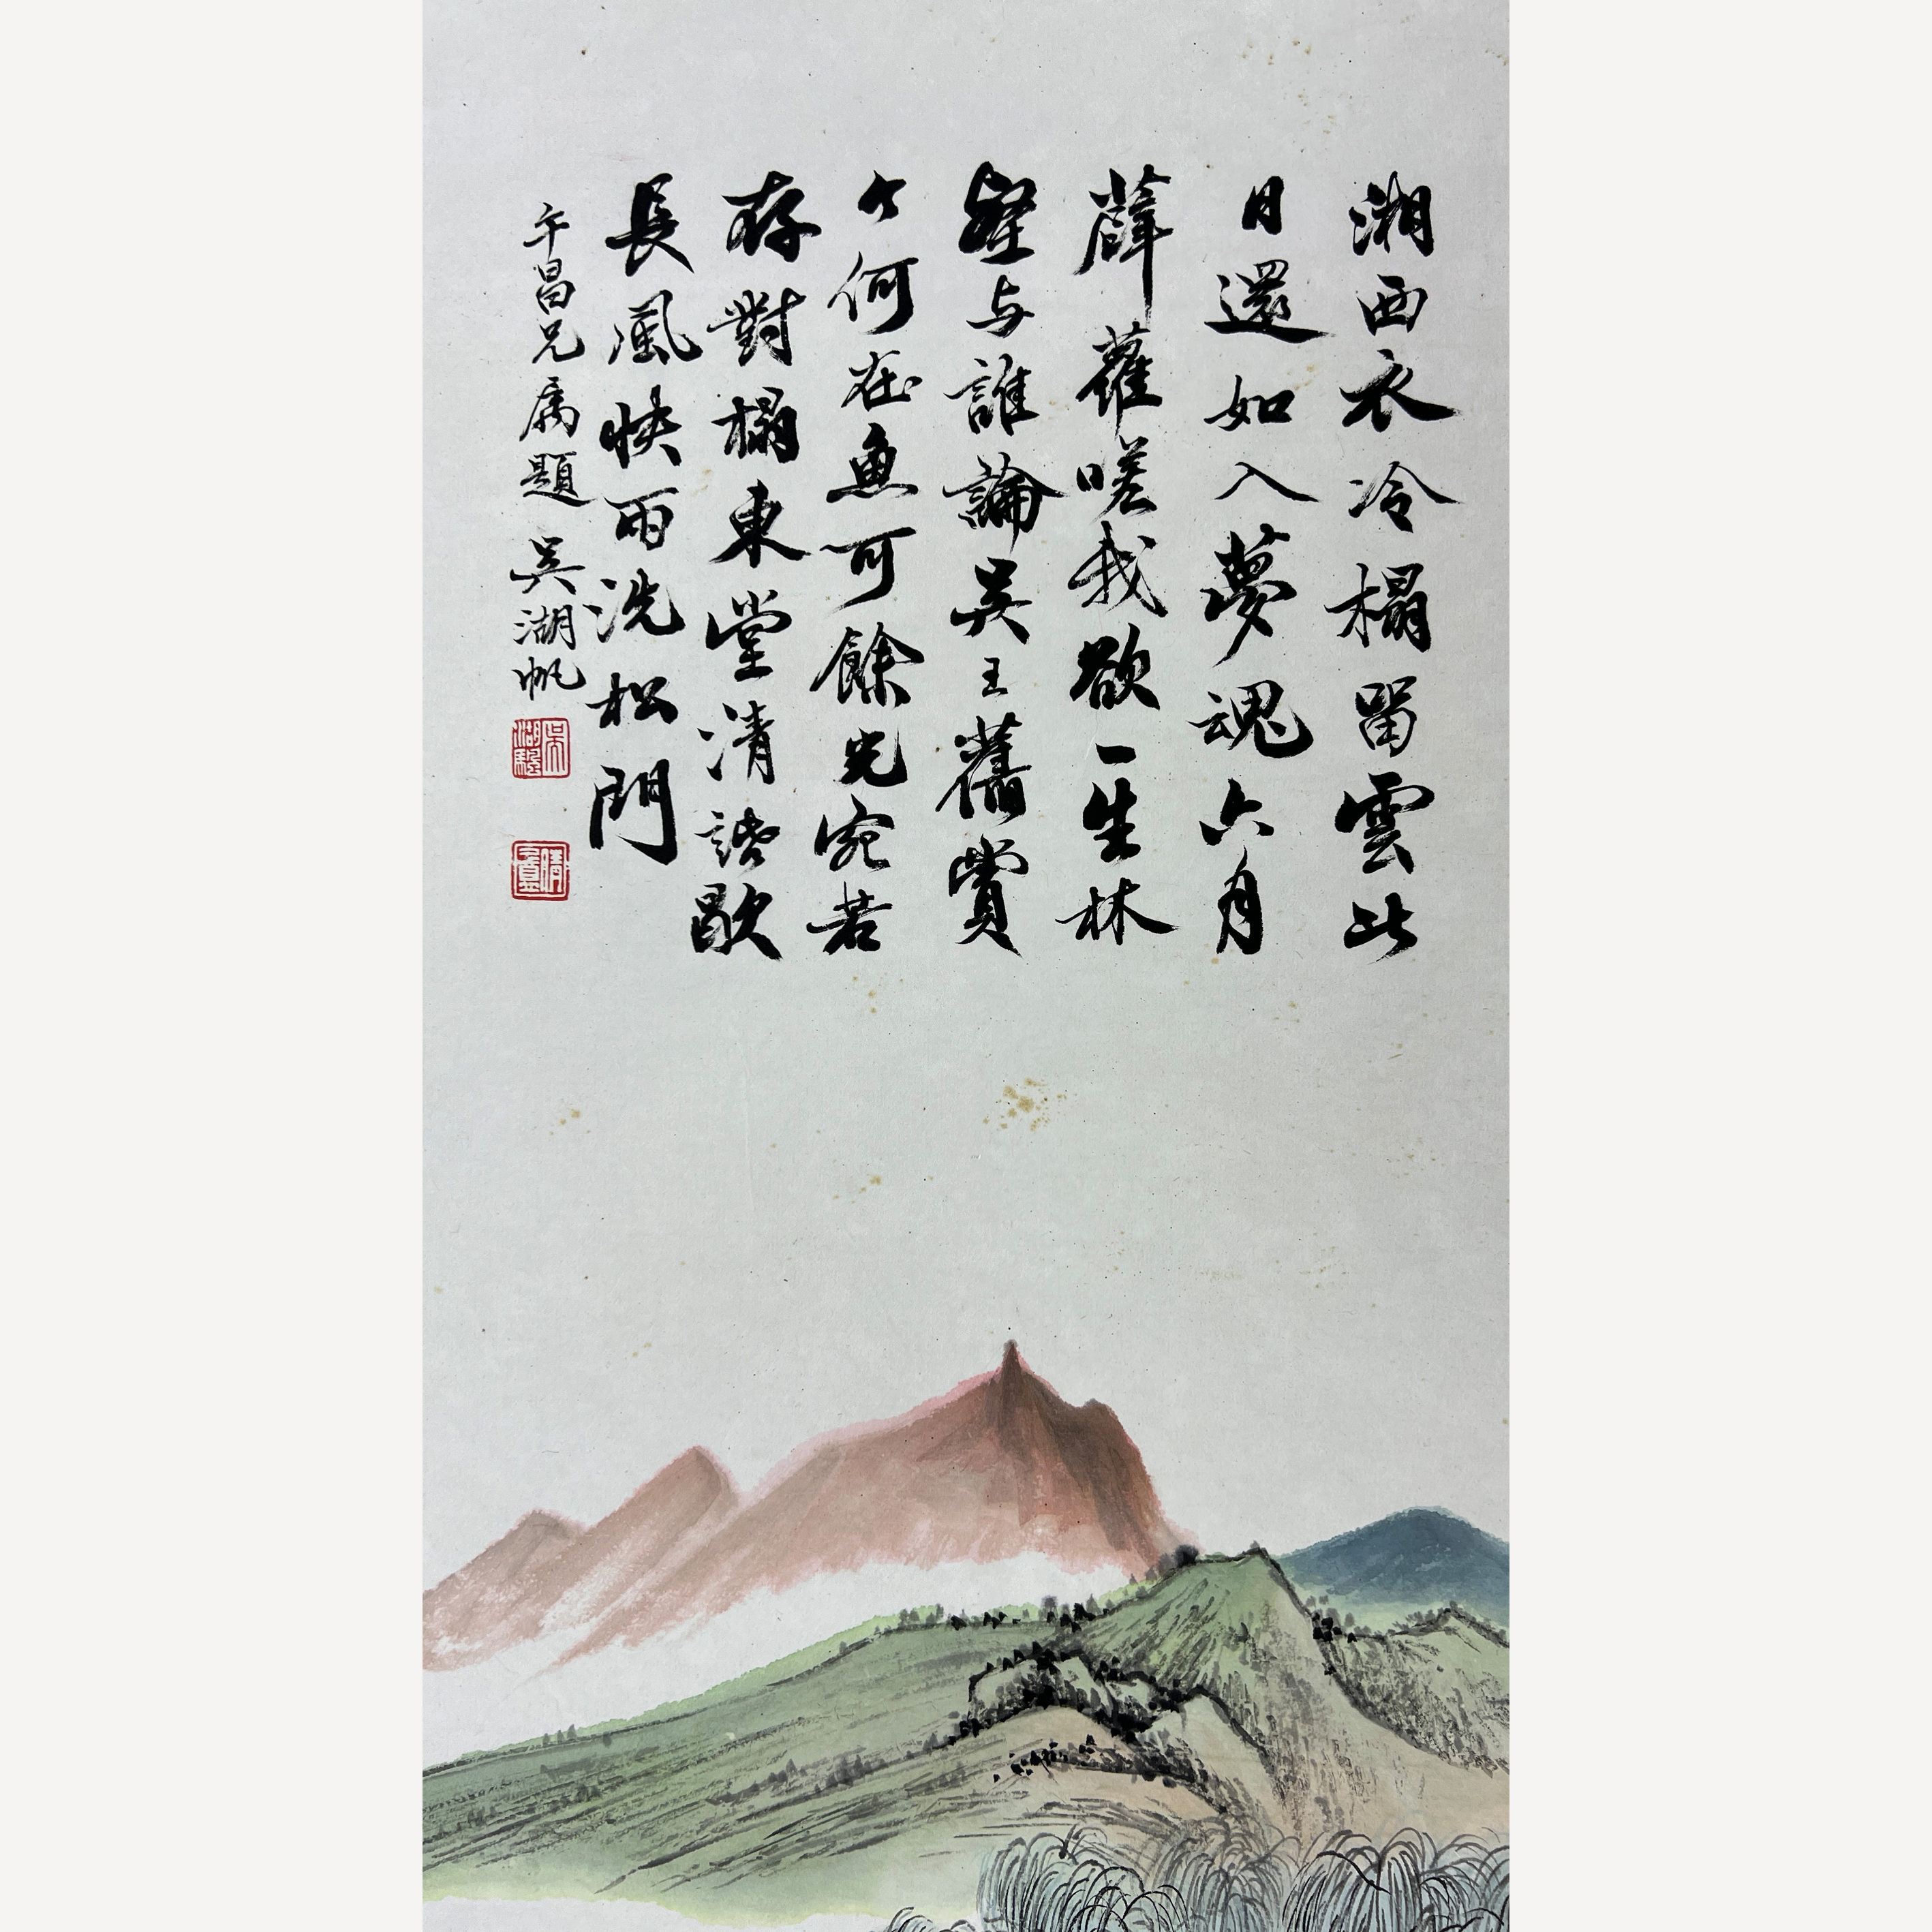 湘西衣冷榻留雲此
日還如入夢魂六月
薜蘿嗟我欲一生林
壑与誰論吴王舊賞
今何在魚可餘光宛若
存對榻東堂清歇
長風快雨洗松門
午昌兄属題 吴湖帆
吴湖颿
倩盦